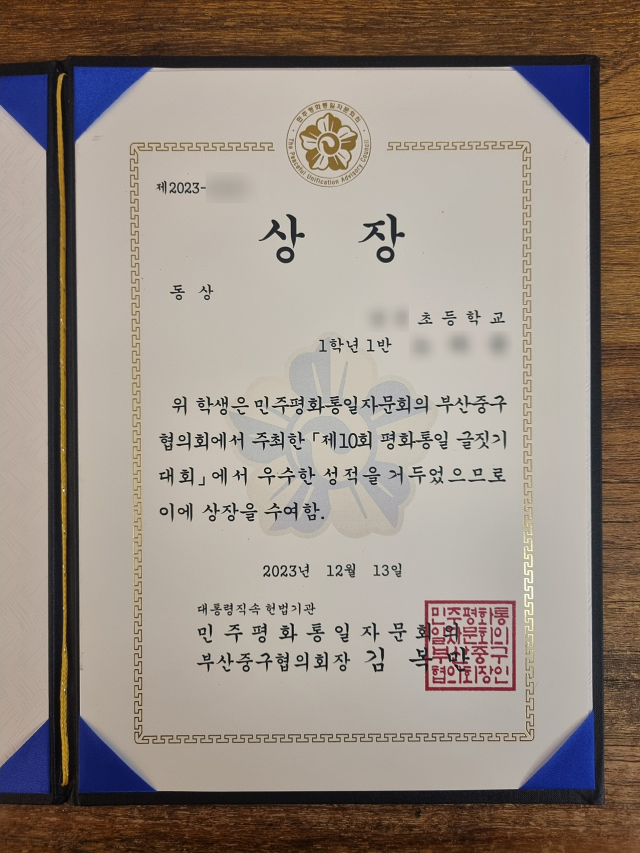 민주평화통일자문회의
The Peaceful Unification Advisory Council
제2023-
상 장
동 상
초등학교
1학년 1반
위 학생은 민주평화통일자문회의 부산중구
협의회에서 주최한 「제10회 평화통일 글짓기
대회」에서 우수한 성적을 거두었으므로
이에 상장을 수여함.
2023년 12월 13일
대통령직속 헌법기관
민주평화통일자문회의
부산중구협의회장 김 복 만
민주평화통
일자문회의
부산중구
협의회장인